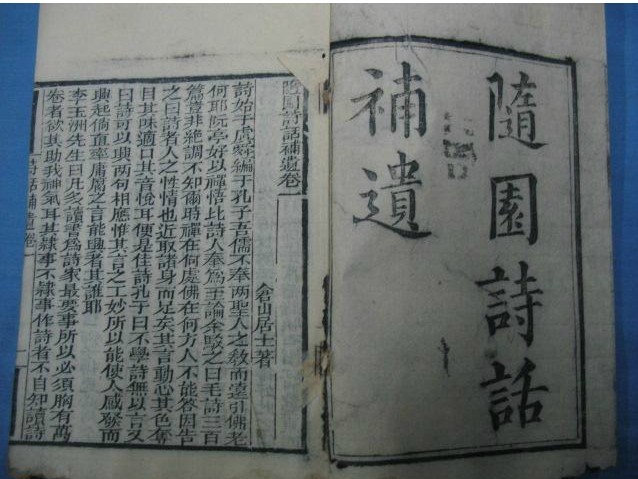 隨園詩話
補遺
隨園詩話補遺卷一
倉山居士著
詩始于虞舜編于孔子吾儒不奉兩聖人之教而遠引佛老
何耶阮亭好以禪悟比詩人奉為至論余駁之曰毛詩三百
篇豈非絕調不知爾時禪在何處佛在何方人不能答因告
之曰詩者人之性情也近取諸身而足矣其言動心其色奪
目其味適口其音悅耳便是佳詩孔子曰不學詩無以言又
曰詩可以興兩句相應惟其言之工妙所以能使人感發而
興起倘直率庸腐之言能興者其誰耶
李玉洲先生曰凡多讀書為詩家最要事所以必須胸有萬
卷者欲其助我神氣耳其隸事不隸事作詩者不自知讀詩
詩話補遺卷一